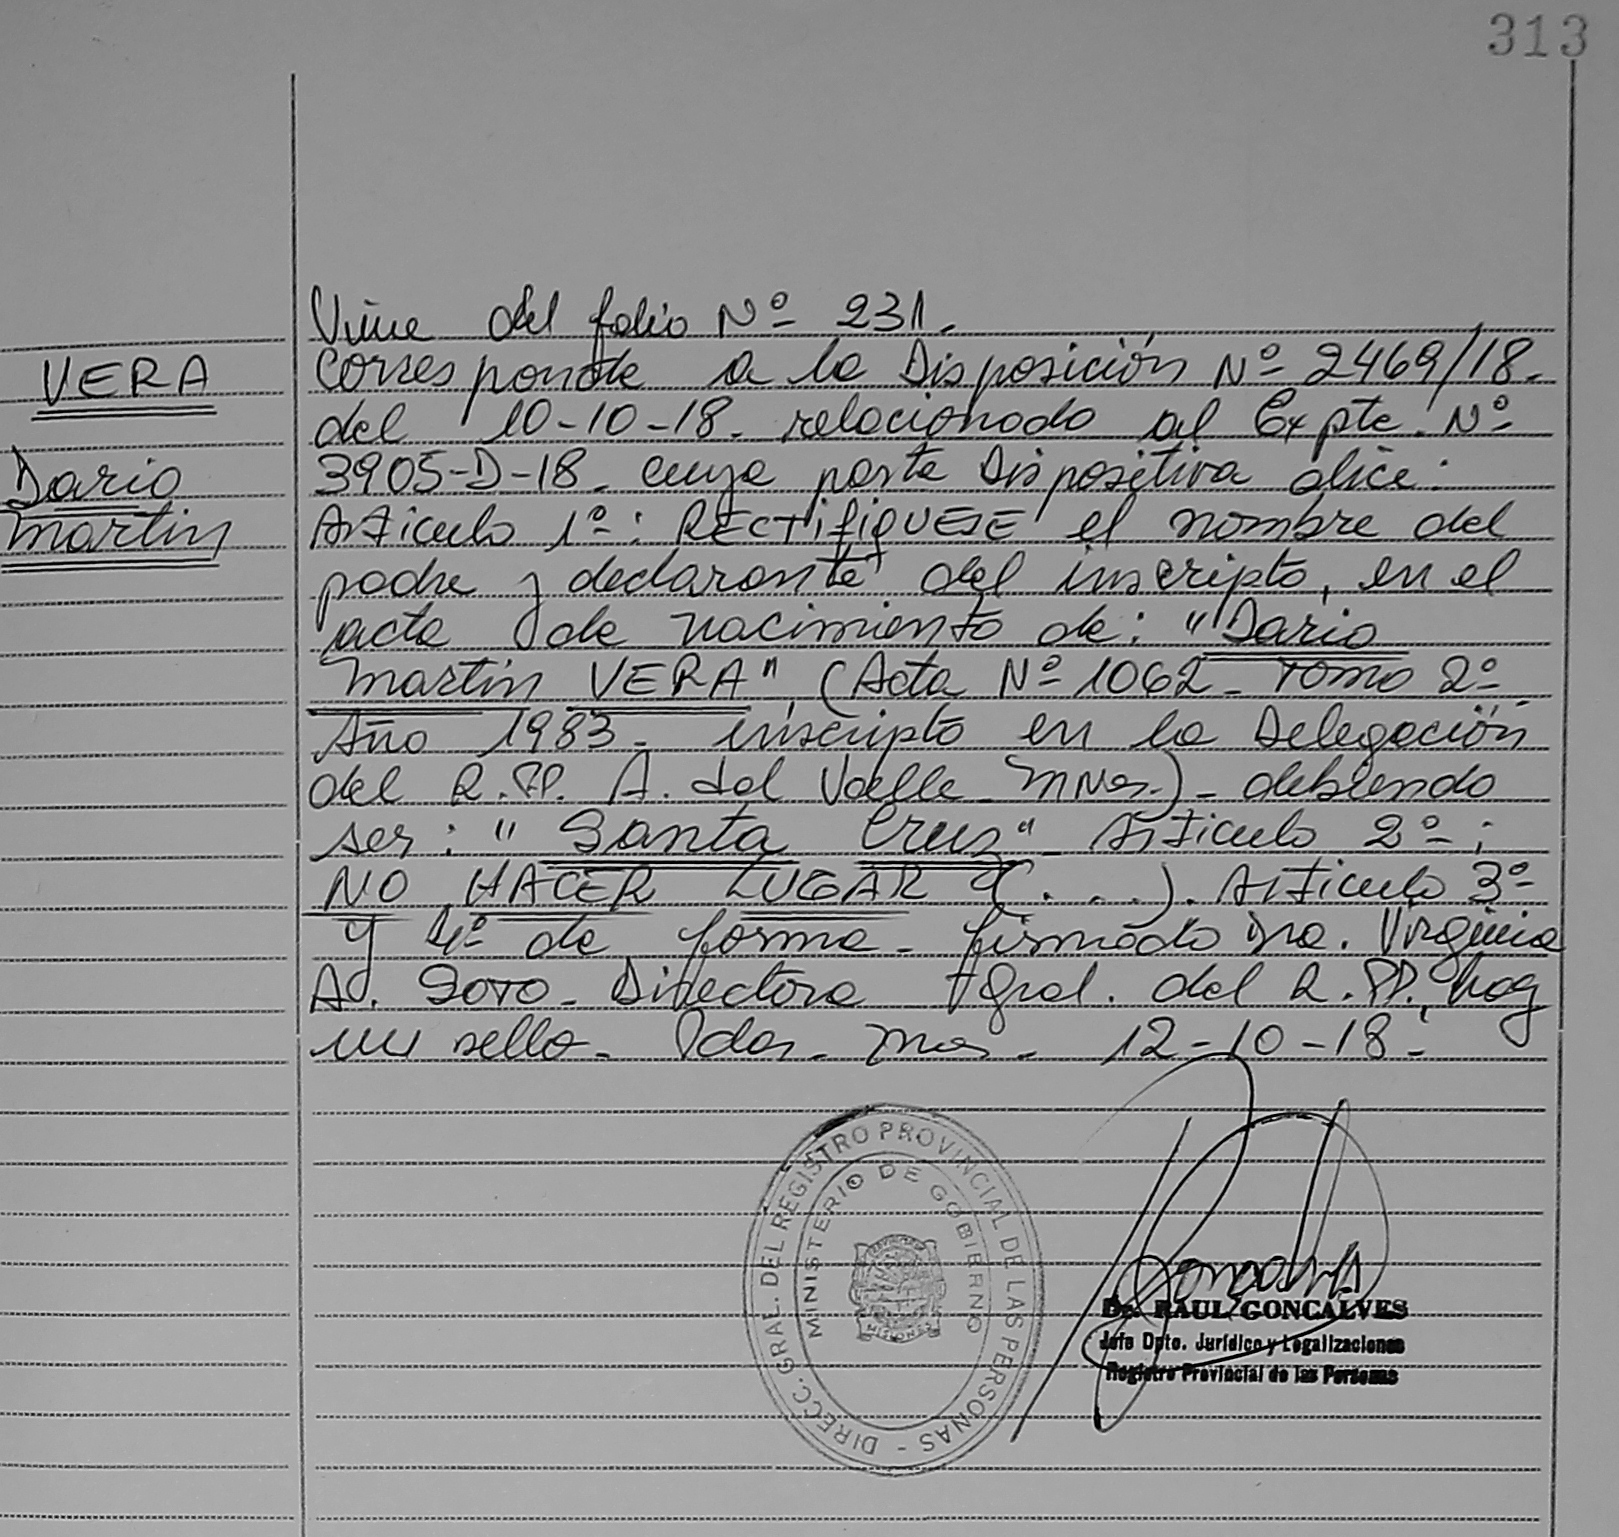 313
VERA
Dario
Martin
Viene del folio Nº 231.
Corresponde a la Disposición Nº 2469/18.
del 10-10-18. relacionado al Expte. Nº
3905-D-18. cuya parte Dispositiva dice:
Articulo 1º: RECTIFIQUESE el nombre del
padre y declarante del inscripto, en el
acta de nacimiento de: "Dario
Martin VERA", (Acta Nº 1062 - Tomo 2º
Año 1983 - inscripto en la Delegación
del R.PP. A. del Valle - Mnes.) - debiendo
ser: "Santa Cruz" Articulo 2º:
NO HACER LUGAR (...). Articulo 3º
y 4º de forma - firmado Dra. Virginia
A. Soto - Directora Gral. del R.PP. hay
un sello. Pdas. Mnes. 12-10-18.
DIRECC. GRAL. DEL REGISTRO PROVINCIAL DE LAS PERSONAS -
MINISTERIO DE GOBIERNO
MISIONES
Dr. RAUL GONCALVES
Jefe Dpto. Jurídico y Legalizaciones
Registro Provincial de las Personas